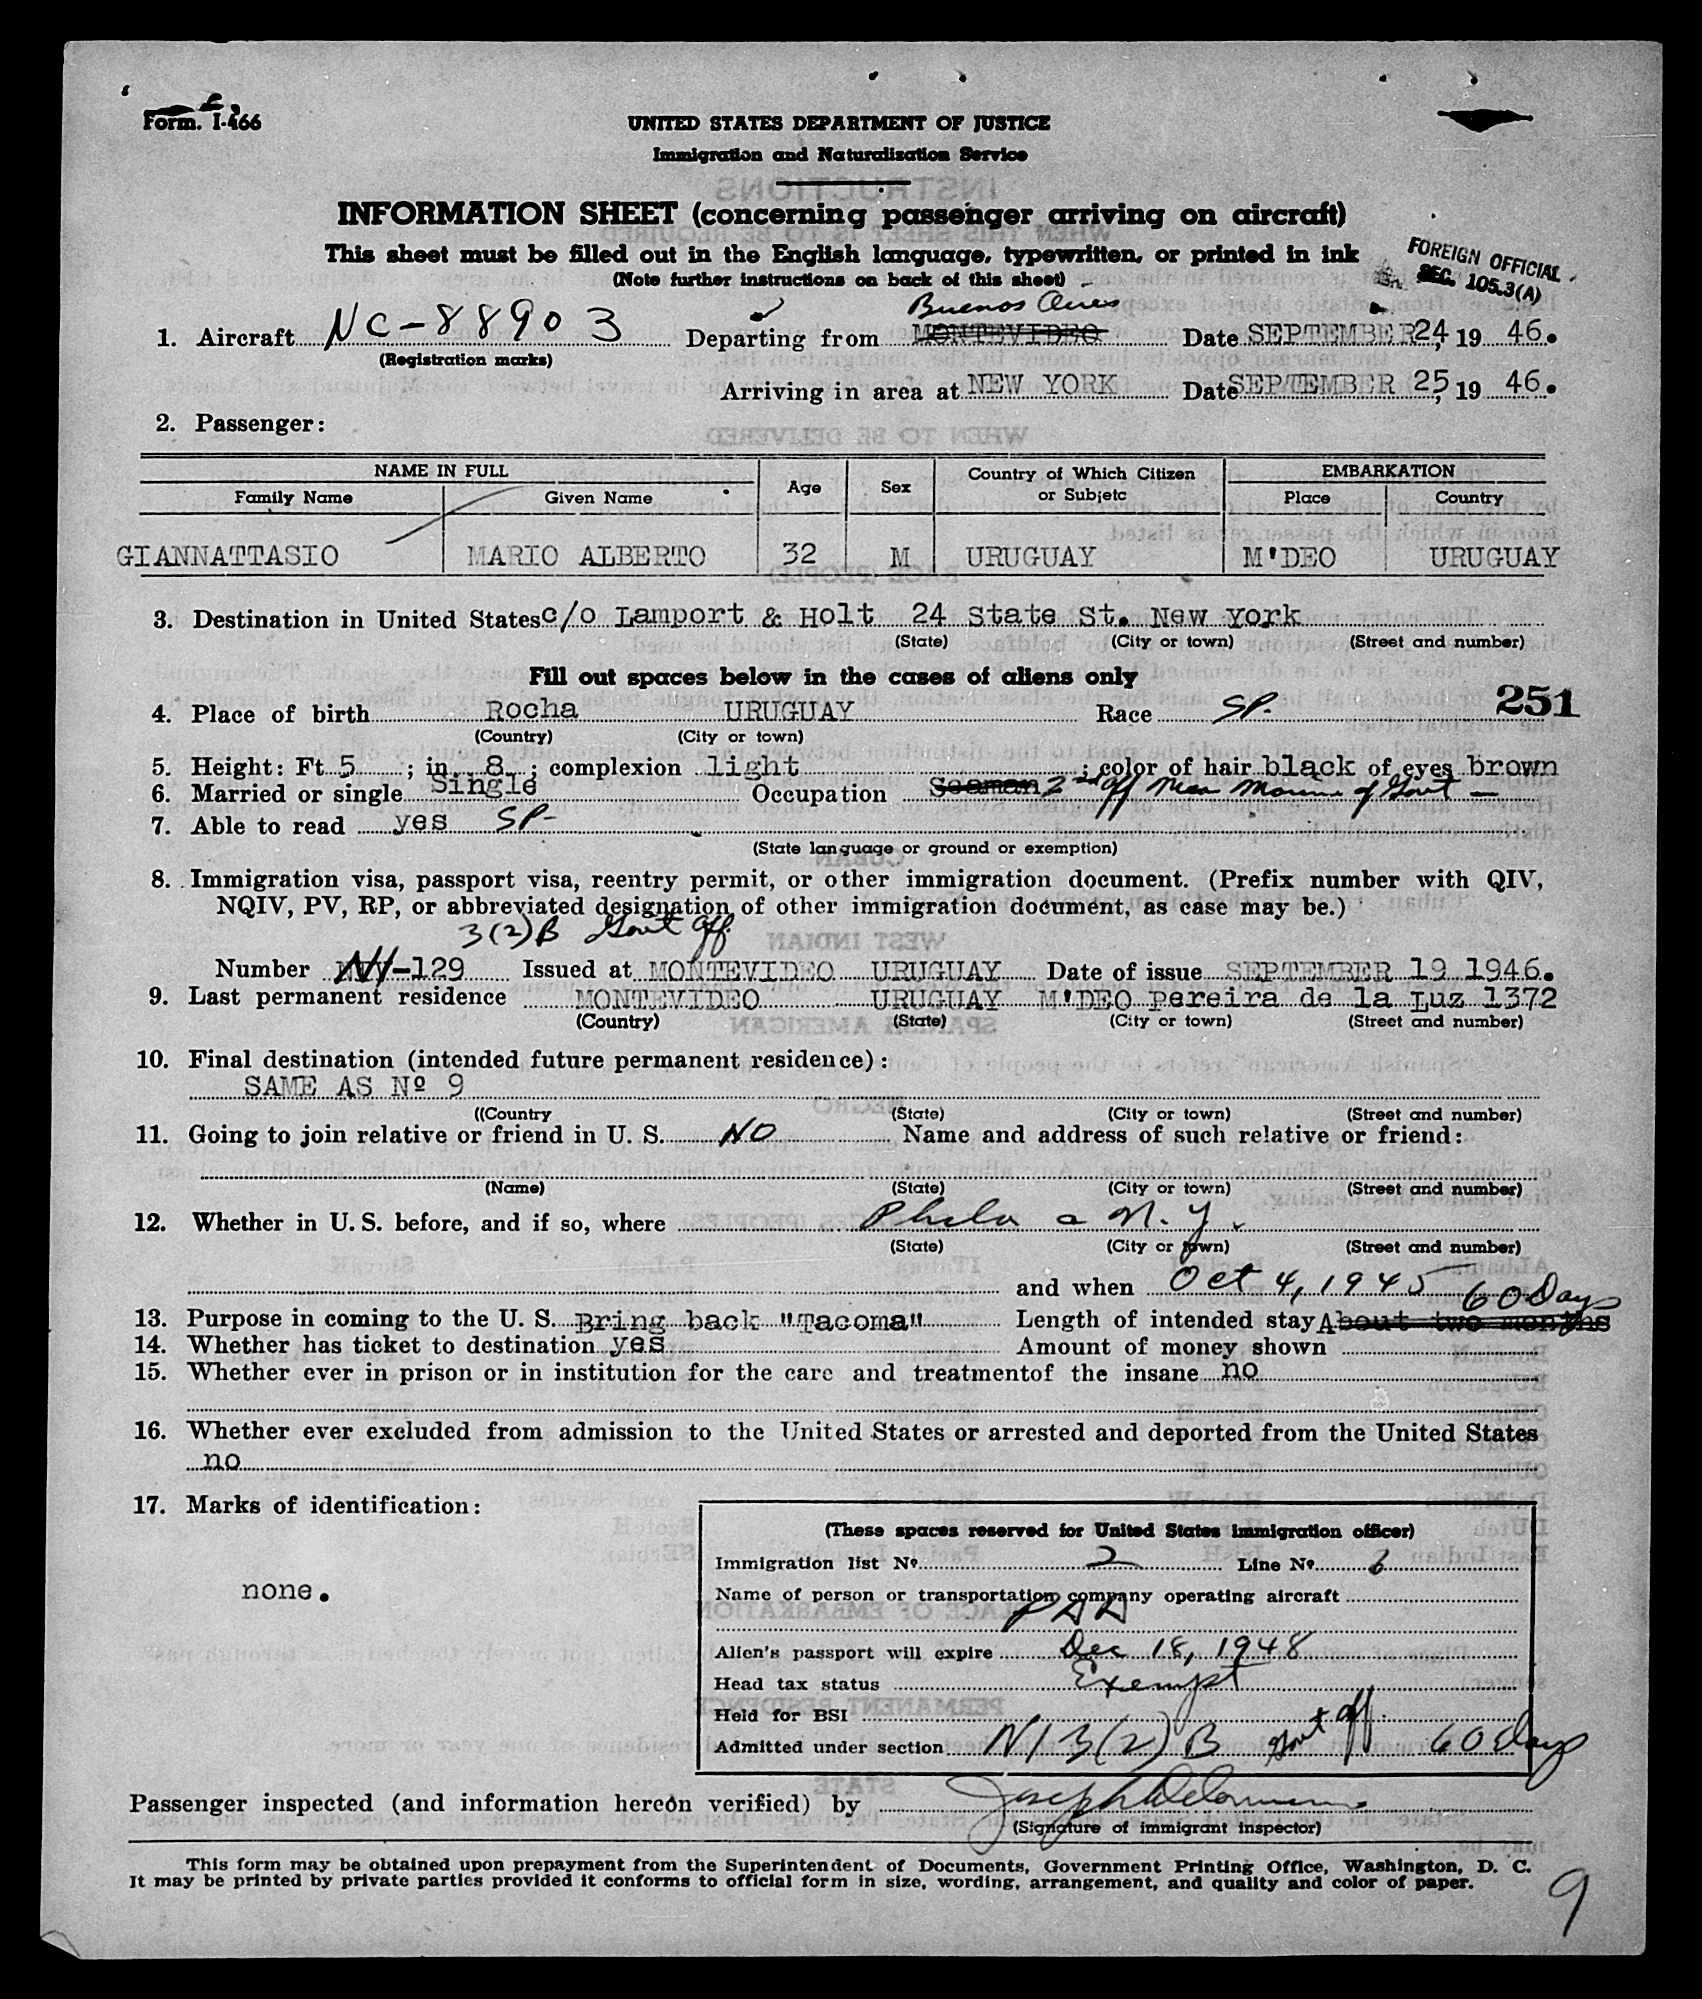 Form. I-466
UNITED STATES DEPARTMENT OF JUSTICE
Immigration and Naturalization Service
INFORMATION SHEET (concerning passenger arriving on aircraft)
This sheet must be filled out in the English language, typewritten, or printed in ink
(Note further instructions on back of this sheet)
FOREIGN OFFICIAL
SEC. 105.3(A)
Buenos Aires
1. Aircraft NC-88903 Departing from MONTEVIDEO Date SEPTEMBER 24, 19 46.
(Registration marks)
Arriving in area at NEW YORK Date SEPTEMBER 25, 19 46.
2. Passenger:
NAME IN FULL Age Sex Country of Which Citizen or Subjetc EMBARKATION
Family Name Given Name Place Country
GIANNATTASIO MARIO ALBERTO 32 M URUGUAY M'DEO URUGUAY
3. Destination in United States c/o Lamport & Holt 24 State St. New York
(State) (City or town) (Street and number)
Fill out spaces below in the cases of aliens only
251
4. Place of birth Rocha URUGUAY Race SP.
(Country) (City or town)
5. Height: Ft 5 ; in. 8 ; complexion light ; color of hair black of eyes brown
6. Married or single Single Occupation Seaman 2nd Off Mer Marine of Govt —
7. Able to read yes SP-
(State language or ground or exemption)
8. Immigration visa, passport visa, reentry permit, or other immigration document. (Prefix number with QIV,
NQIV, PV, RP, or abbreviated designation of other immigration document, as case may be.)
3(2)B Govt Off.
Number NI-129 Issued at MONTEVIDEO URUGUAY Date of issue SEPTEMBER 19 1946.
9. Last permanent residence MONTEVIDEO URUGUAY M'DEO Pereira de la Luz 1372
(Country) (State) (City or town) (Street and number)
10. Final destination (intended future permanent residence):
SAME AS Nº 9
((Country (State) (City or town) (Street and number)
11. Going to join relative or friend in U. S. NO Name and address of such relative or friend:
(Name) (State) (City or town) (Street and number)
12. Whether in U. S. before, and if so, where Phila a N.Y.
(State) (City or town) (Street and number)
and when Oct 4, 1945
60 Days
13. Purpose in coming to the U. S. Bring back "Tacoma" Length of intended stay About two months
14. Whether has ticket to destination yes Amount of money shown
15. Whether ever in prison or in institution for the care and treatmentof the insane no
16. Whether ever excluded from admission to the United States or arrested and deported from the United States
no
17. Marks of identification:
none.
(These spaces reserved for United States immigration officer)
Immigration list Nº 2 Line Nº 6
Name of person or transportation company operating aircraft
PAA
Alien's passport will expire Dec 18, 1948
Head tax status Exempt
Held for BSI
Admitted under section NI 3(2)B Govt Off. 60 days
Passenger inspected (and information hereon verified) by
(Signature of immigrant inspector)
This form may be obtained upon prepayment from the Superintendent of Documents, Government Printing Office, Washington, D. C.
It may be printed by private parties provided it conforms to official form in size, wording, arrangement, and quality and color of paper.
9